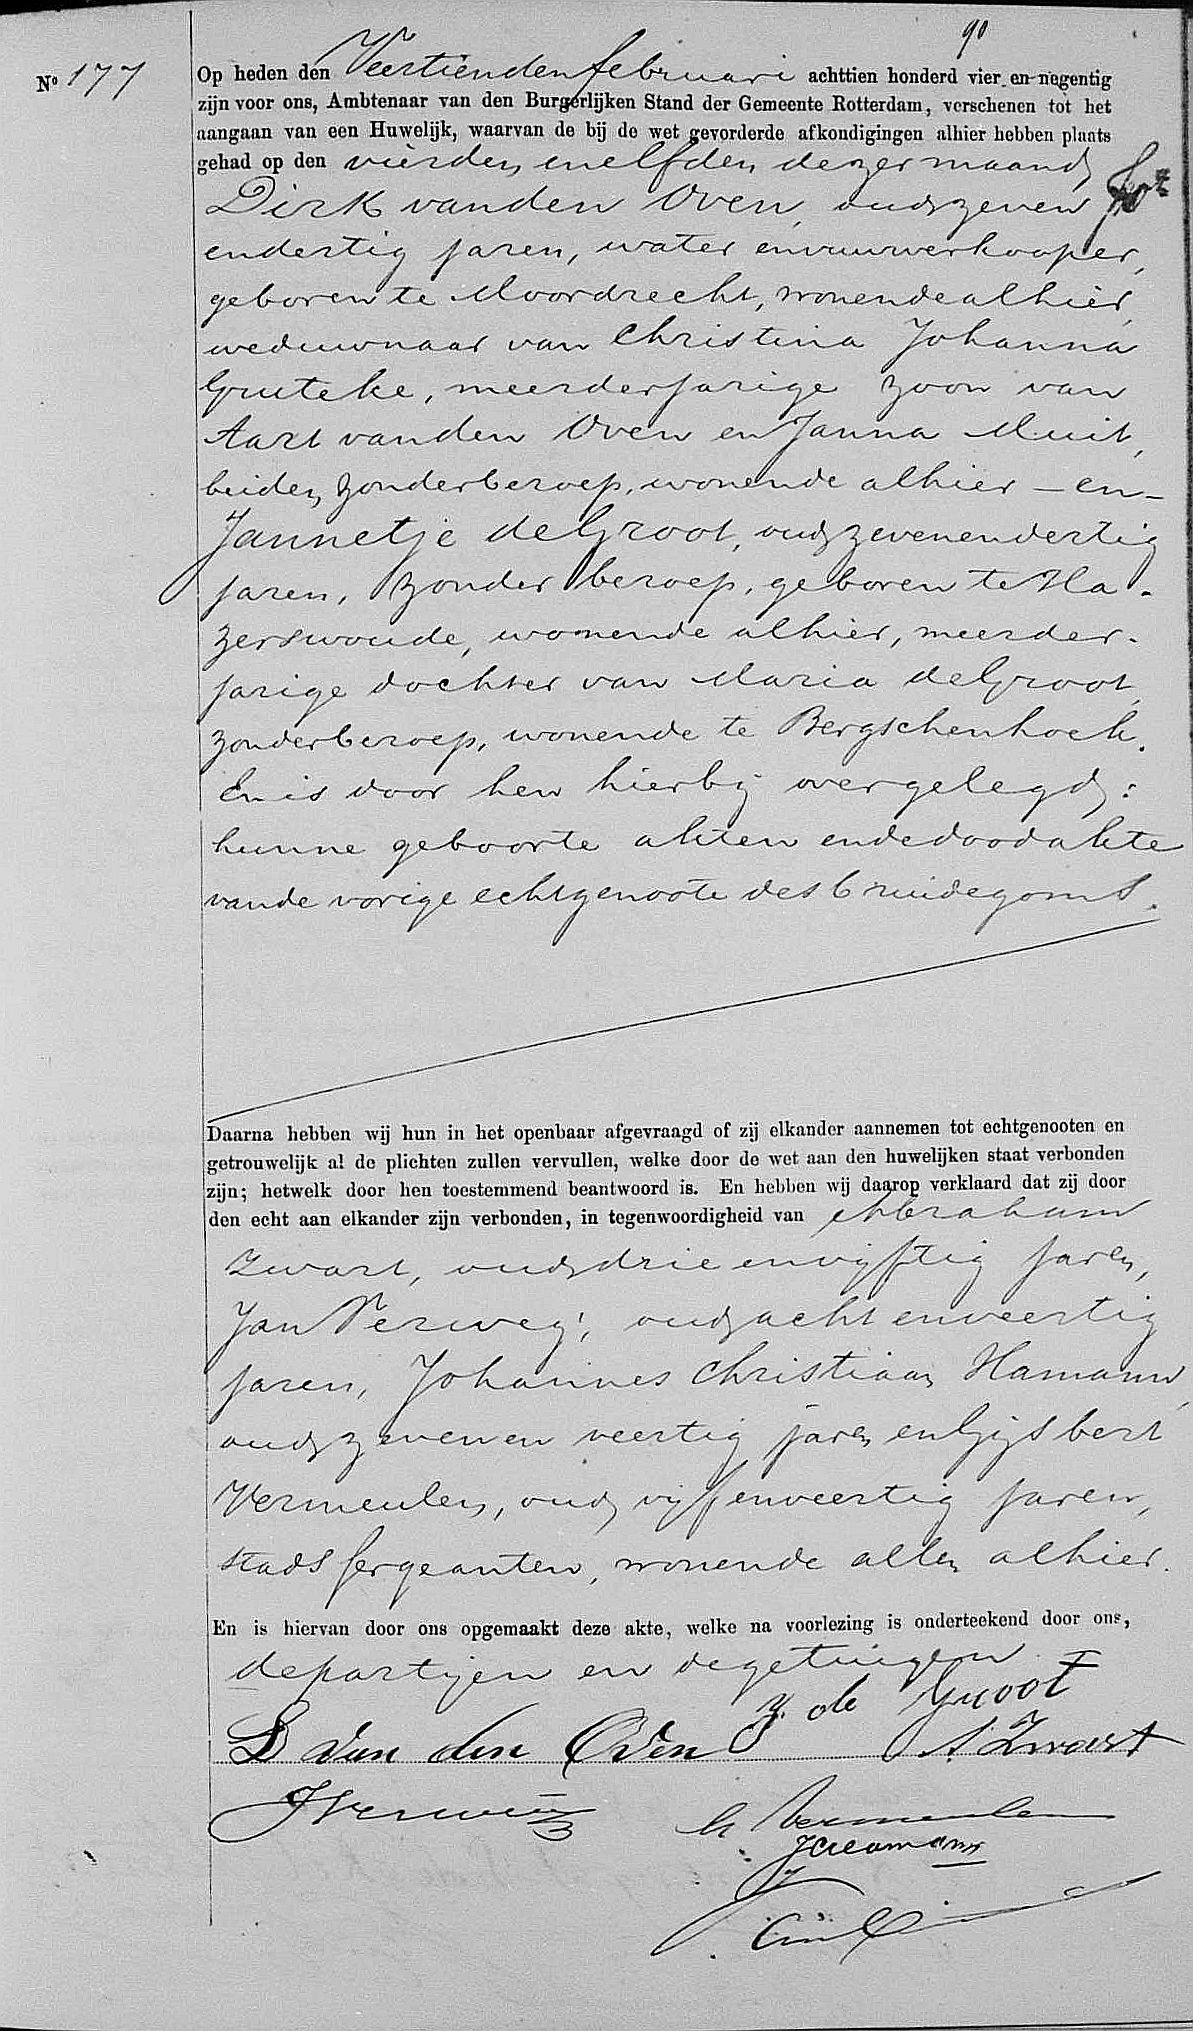 90
No 177
Op heden den Veertienden februari achttien honderd vier en negentig
zijn voor ons, Ambtenaar van den Burgerlijken Stand der Gemeente Rotterdam, verschenen tot het
aangaan van een Huwelijk, waarvan de bij de wet gevorderde afkondigingen alhier hebben plaats
gehad op den vierden en elfden dezer maand
Dirk van den Oven, oud zeven
en dertig jaren, water en vuurverkooper,
geboren te Moordrecht, wonende alhier,
weduwnaar van Christina Johanna
Gruteke, meerderjarige zoon van
Aart van den Oven en Janna Muit,
beiden zonder beroep, wonende alhier – en –
Jannetje de Groot, oud zevenendertig
jaren, zonder beroep, geboren te Ha-
zerswoude, wonende alhier, meerder-
jarige dochter van Maria de Groot,
zonder beroep, wonende te Bergschenhoek.
En is door hen hierbij overgelegd:
hunne geboorte akten en de doodakte
van de vorige echtgenoote des bruidegoms.
Daarna hebben wij hun in het openbaar afgevraagd of zij elkander aannemen tot echtgenooten en
getrouwelijk al de plichten zullen vervullen, welke door de wet aan den huwelijken staat verbonden
zijn; hetwelk door hen toestemmend beantwoord is. En hebben wij daarop verklaard dat zij door
den echt aan elkander zijn verbonden, in tegenwoordigheid van Abraham
Zwart, oud drie en vijftig jaren,
Jan Verweij, oud acht en veertig
jaren, Johannes Christiaan Hamann,
oud zeven en veertig jaren en Gijsbert
Vermeulen, oud vijf en veertig jaren,
stads sergeanten, wonende allen alhier.
En is hiervan door ons opgemaakt deze akte, welke na voorlezing is onderteekend door ons,
de partijen en de getuigen.
J. de Groot
D van den Oven A. Zwart
J Verweij
G. Vermeulen
JCHamann